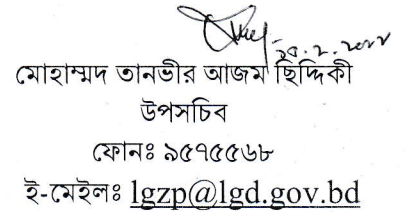 ১০.২.২০২২
মোহাম্মদ তানভীর আজম ছিদ্দিকী
উপসচিব
ফোনঃ ৯৫৭৫৫৬৮
ই-মেইলঃ lgzp@lgd.gov.bd